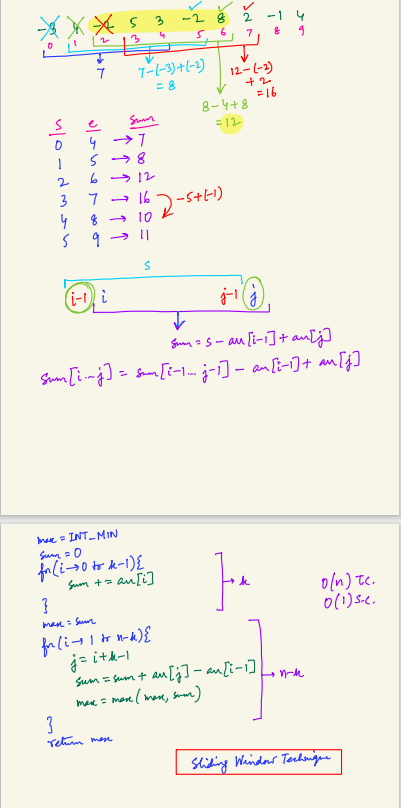 -3 4 -2 5 3 4 -2 8 2 -1 4
0 1 2 3 4 5 6 7 8 9
7
7-(-3)+(-2)
= 8
12-(-2)
+ 2
= 16
8-4+8
= 12
s e sum
0 4 → 7
1 5 → 8
2 6 → 12
3 7 → 16
-5+(-1)
4 8 → 10
5 9 → 11
s
i-1 i j-1 j
sum = s - arr[i-1] + arr[j]
sum[i...j] = sum[i-1... j-1] - arr[i-1] + arr[j]
max = INT_MIN
sum = 0
for(i→0 to k-1){
sum += arr[i]
}
→ k
O(n) T.C.
O(1) S.C.
max = sum
for(i→ 1 to n-k){
j = i+k-1
sum = sum + arr[j] - arr[i-1]
max = max(max, sum)
}
→ n-k
return max
Sliding Window Technique